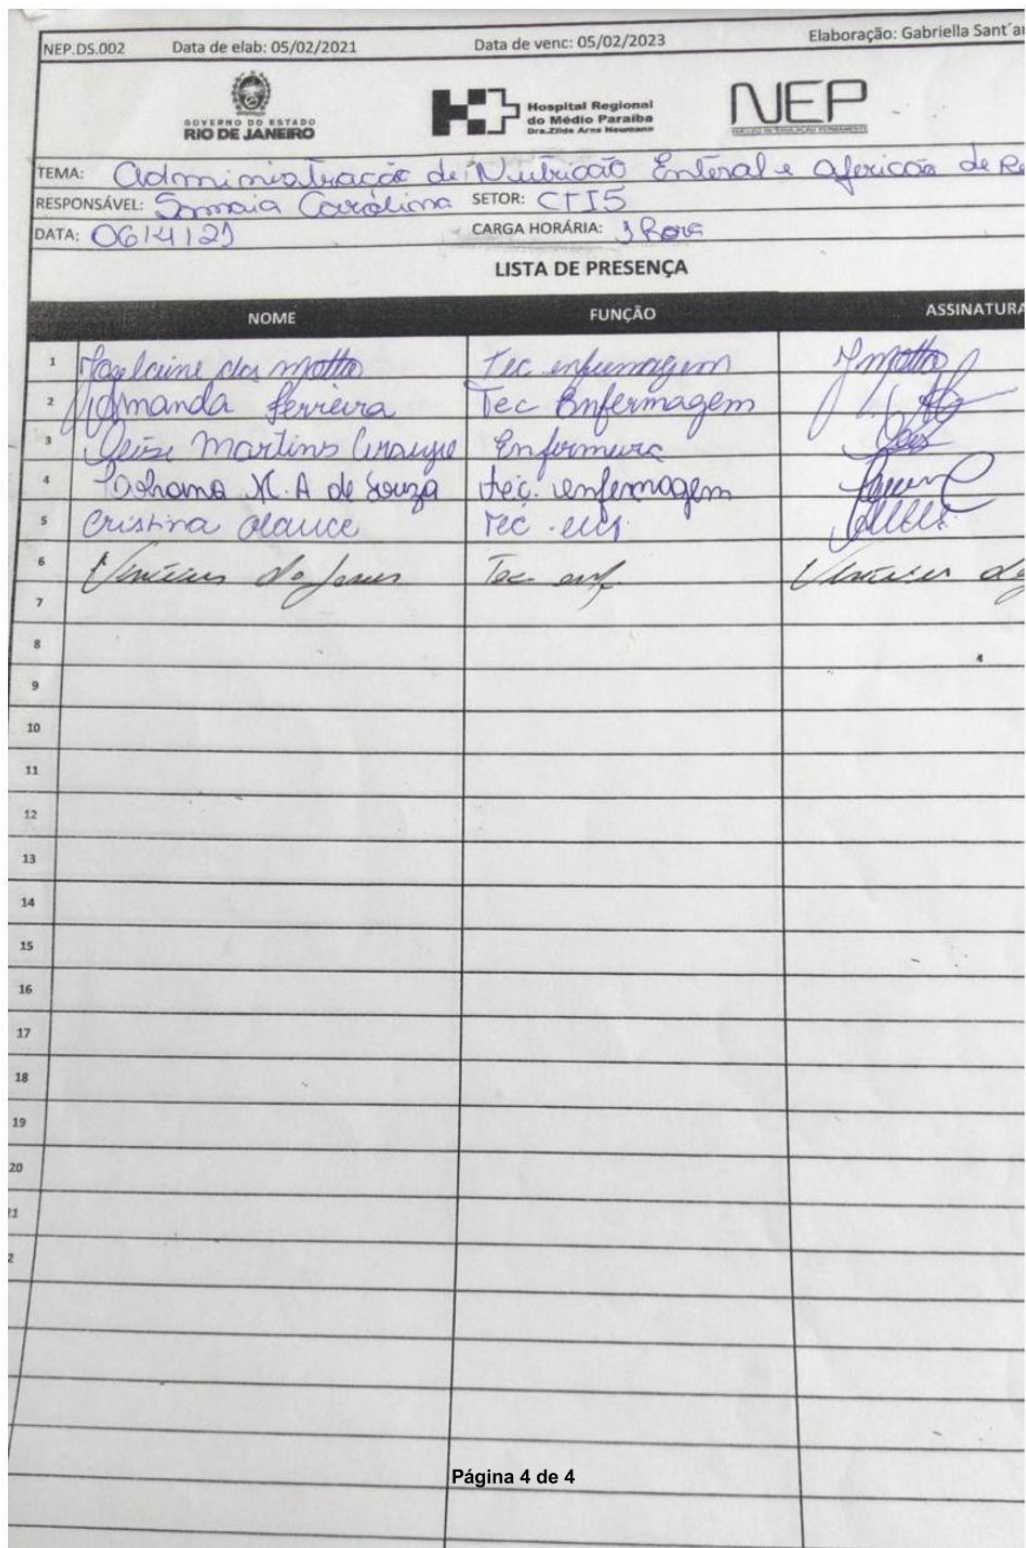 NEP.DS.002 Data de elab: 05/02/2021 Data de venc: 05/02/2023 Elaboração: Gabriella Sant´a
GOVERNO DO ESTADO
RIO DE JANEIRO
Hospital Regional
do Médio Paraíba
Dra.Zilda Arns Neumann
NEP
NÚCLEO DE EDUCAÇÃO PERMANENTE
TEMA: Administração de Nutrição Enteral e Aferição de Re
RESPONSÁVEL: Samaia Carolina SETOR: CTI5
DATA: 06/4/21 CARGA HORÁRIA: 1 Hora
LISTA DE PRESENÇA
NOME FUNÇÃO ASSINATURA
1 da Motta Tec enfermagem Motta
2 Amanda Ferreira Tec Enfermagem
3 Martins Araujo Enfermeira
4 A de Souza tec. enfermagem
5 Cristina Tec. enf.
6 Vinicius de Jesus Tec. enf. Vinicius de
7
8
9
10
11
12
13
14
15
16
17
18
19
20
21
2
Página 4 de 4